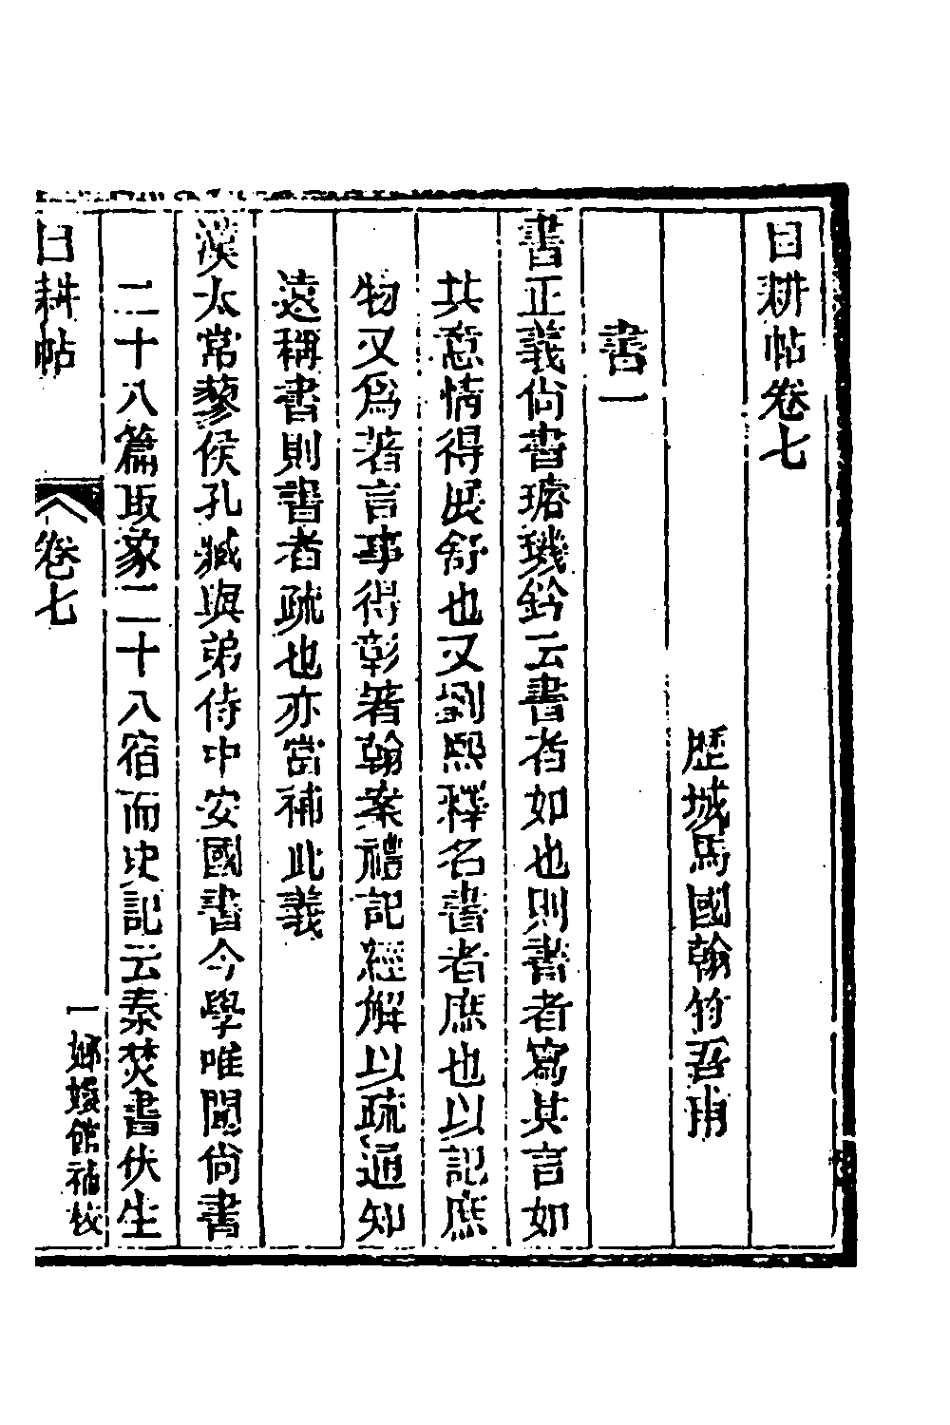 目耕帖卷七
歷城馬國翰竹吾甫
書一
書正義尙書璿璣鈐云書者如也則書者寫其言如
其意情得展舒也又劉熙釋名書者庶也以記庶
物又爲著言事得彰著翰案禮記經解以疏通知
遠稱書則書者疏也亦當補此義
漢太常蓼侯孔臧與弟侍中安國書今學唯聞尙書
二十八篇取象二十八宿而史記云秦焚書伏生
目耕帖
卷七
一嫏嬛館補校